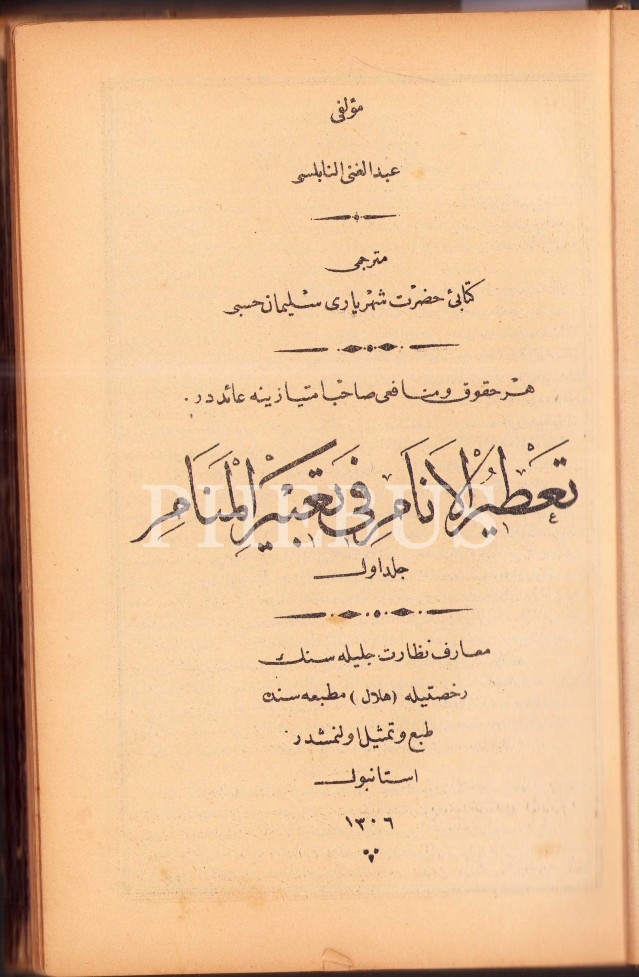 مؤلفى
عبد الغنى النابلسى
مترجمى
كتابئ حضرت شهريارى سليمان حسبى
هر حقوق ومنافعى صاحب امتيازينه عائددر.
تَعْطِيرُ الْاَنَامِ فِى تَعْبِيرِ الْمَنَامِ
PHEBUS
جلد اول
معارف نظارت جليله سنك
رخصتيله (هلال) مطبعه سنده
طبع وتمثيل اولنمشدر
استانبول
١٣٠٦